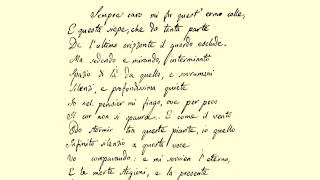 Sempre caro mi fu quest' ermo colle,
E questa siepe, che da tanta parte
De l'ultimo orizzonte il guardo esclude.
Ma sedendo e mirando, l'interminato
Spazio di là da quello, e sovrumani
Silenzi, e profondissima quiete
Io nel pensier mi fingo, ove per poco
Il cor non si spaura. E come il vento
Odo stormir tra queste piante, io quello
Infinito silenzio a questa voce
Vo comparando: e mi sovvien l'eterno,
E le morte stagioni, e la presente